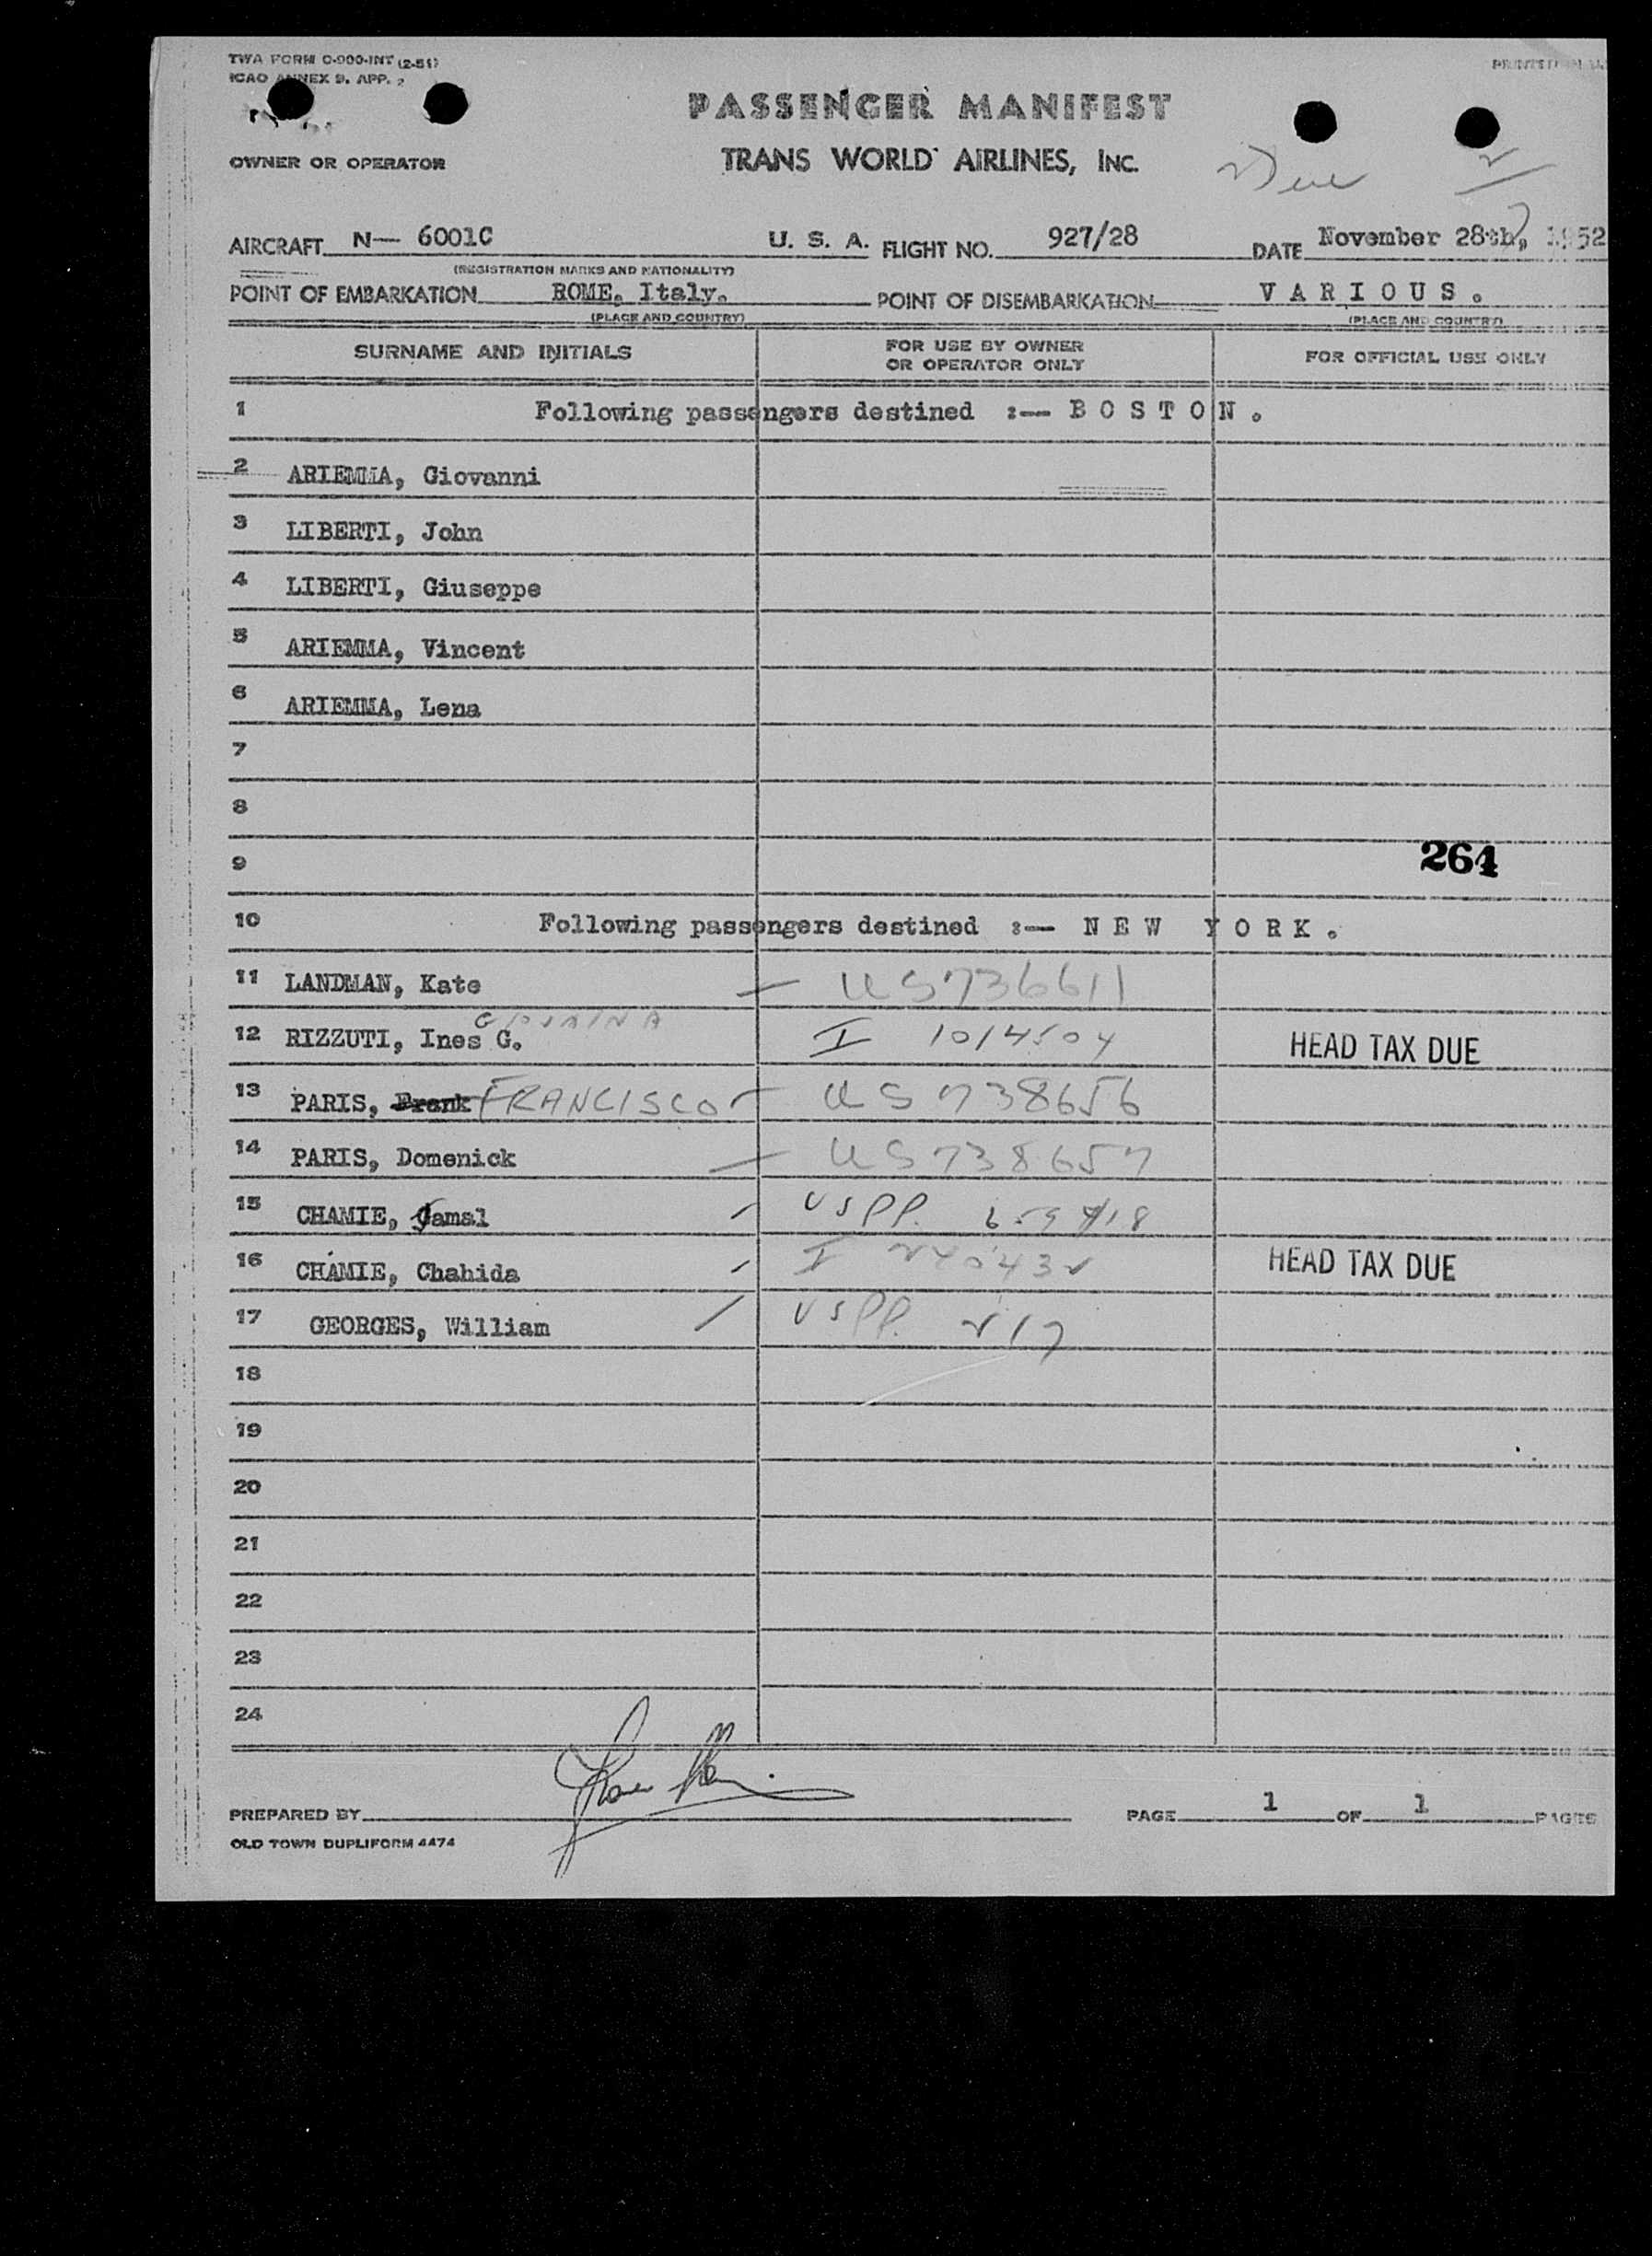 TWA FORM O-900-INT (2-51)
ICAO ANNEX 9. APP. 2
PASSENGER MANIFEST
OWNER OR OPERATOR
TRANS WORLD AIRLINES, INC.
AIRCRAFT N— 6001C U. S. A. FLIGHT NO. 927/28 DATE November 28th, 1952
(REGISTRATION MARKS AND NATIONALITY)
POINT OF EMBARKATION ROME, Italy. POINT OF DISEMBARKATION VARIOUS.
(PLACE AND COUNTRY) (PLACE AND COUNTRY)
SURNAME AND INITIALS FOR USE BY OWNER OR OPERATOR ONLY FOR OFFICIAL USE ONLY
1 Following passengers destined :— BOSTON.
2 ARIEMMA, Giovanni
3 LIBERTI, John
4 LIBERTI, Giuseppe
5 ARIEMMA, Vincent
6 ARIEMMA, Lena
7
8
9 264
10 Following passengers destined :— NEW YORK.
11 LANDMAN, Kate — US736611
12 RIZZUTI, Ines G. I 1014504 HEAD TAX DUE
13 PARIS, Frank FRANCISCO — US 738656
14 PARIS, Domenick — US738657
15 CHAMIE, Jamal USPP.
16 CHAMIE, Chahida I HEAD TAX DUE
17 GEORGES, William USPP. 217
18
19
20
21
22
23
24
PREPARED BY PAGE 1 OF 1 PAGES
OLD TOWN DUPLIFORM 4474